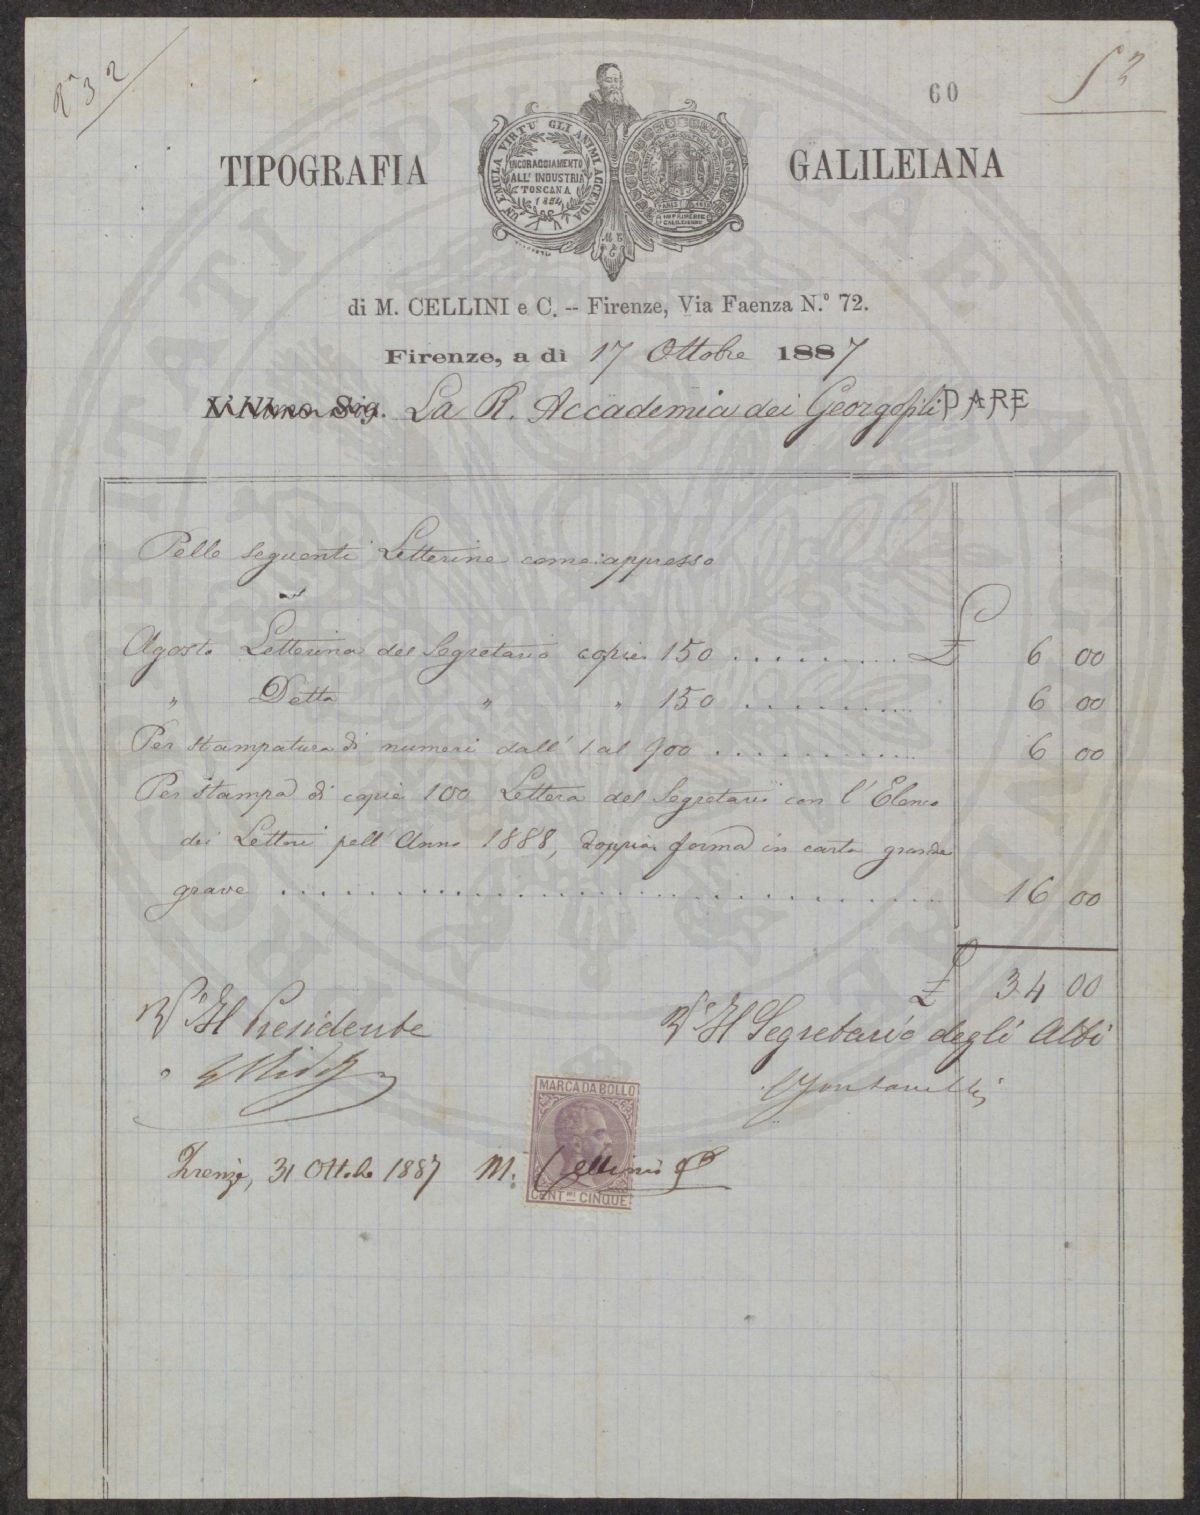 R.a 32
52
60
TIPOGRAFIA GALILEIANA
UN'EMULA VIRTU' GLI ANIMI ACCENDA
INCORAGGIAMENTO
ALL'INDUSTRIA
TOSCANA
1854
IMPRIMERIE
GALILEIENNE
di M. CELLINI e C. -- Firenze, Via Faenza N.º 72.
Firenze, a dì 17 Ottobre 1887
La R. Accademia dei Georgofili DARE
Pelle seguenti Letterine come appresso
Agosto Letterina del Segretario copie 150 ......... £ 6 00
" Detta " " 150 ......... 6 00
Per stampatura di numeri dall' 1 al 900 ........... 6 00
Per stampa di copie 100 Lettera del Segretario con l'Elenco
dei Lettori pell'Anno 1888, doppia forma in carta grande
grave ................................. 16 00
£ 34 00
Vº Il Presidente
Vº Il Segretario degli Atti
MARCA DA BOLLO
CENT.MI CINQUE
Firenze, 31 Ottobre 1887 M. Cellini e C